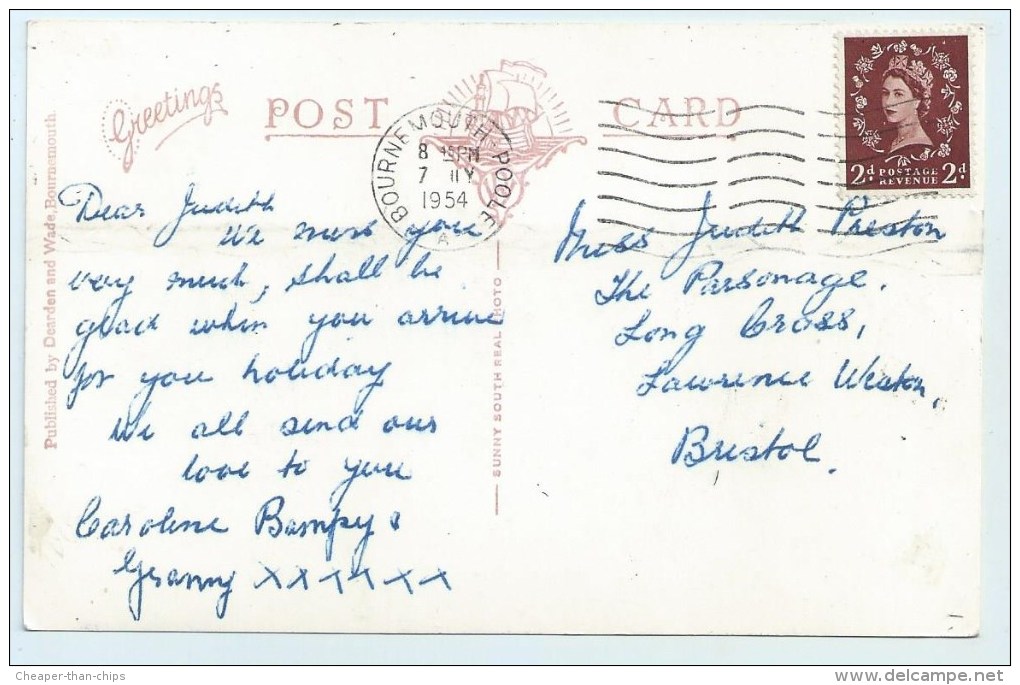 Greetings
POST CARD
BOURNEMOUTH-POOLE
8 15PM
7
1954
A
2d POSTAGE REVENUE 2d
Published by Dearden and Wade, Bournemouth.
SUNNY SOUTH REAL PHOTO
Dear Judith
We miss you
very much, shall be
glad when you arrive
for you holiday
We all send our
love to you
Caroline Bampy &
Granny xxxxxx
Miss Judith Preston
The Parsonage.
Long Cross,
Lawrence Weston,
Bristol.
Cheaper-than-chips
www.delcampe.net